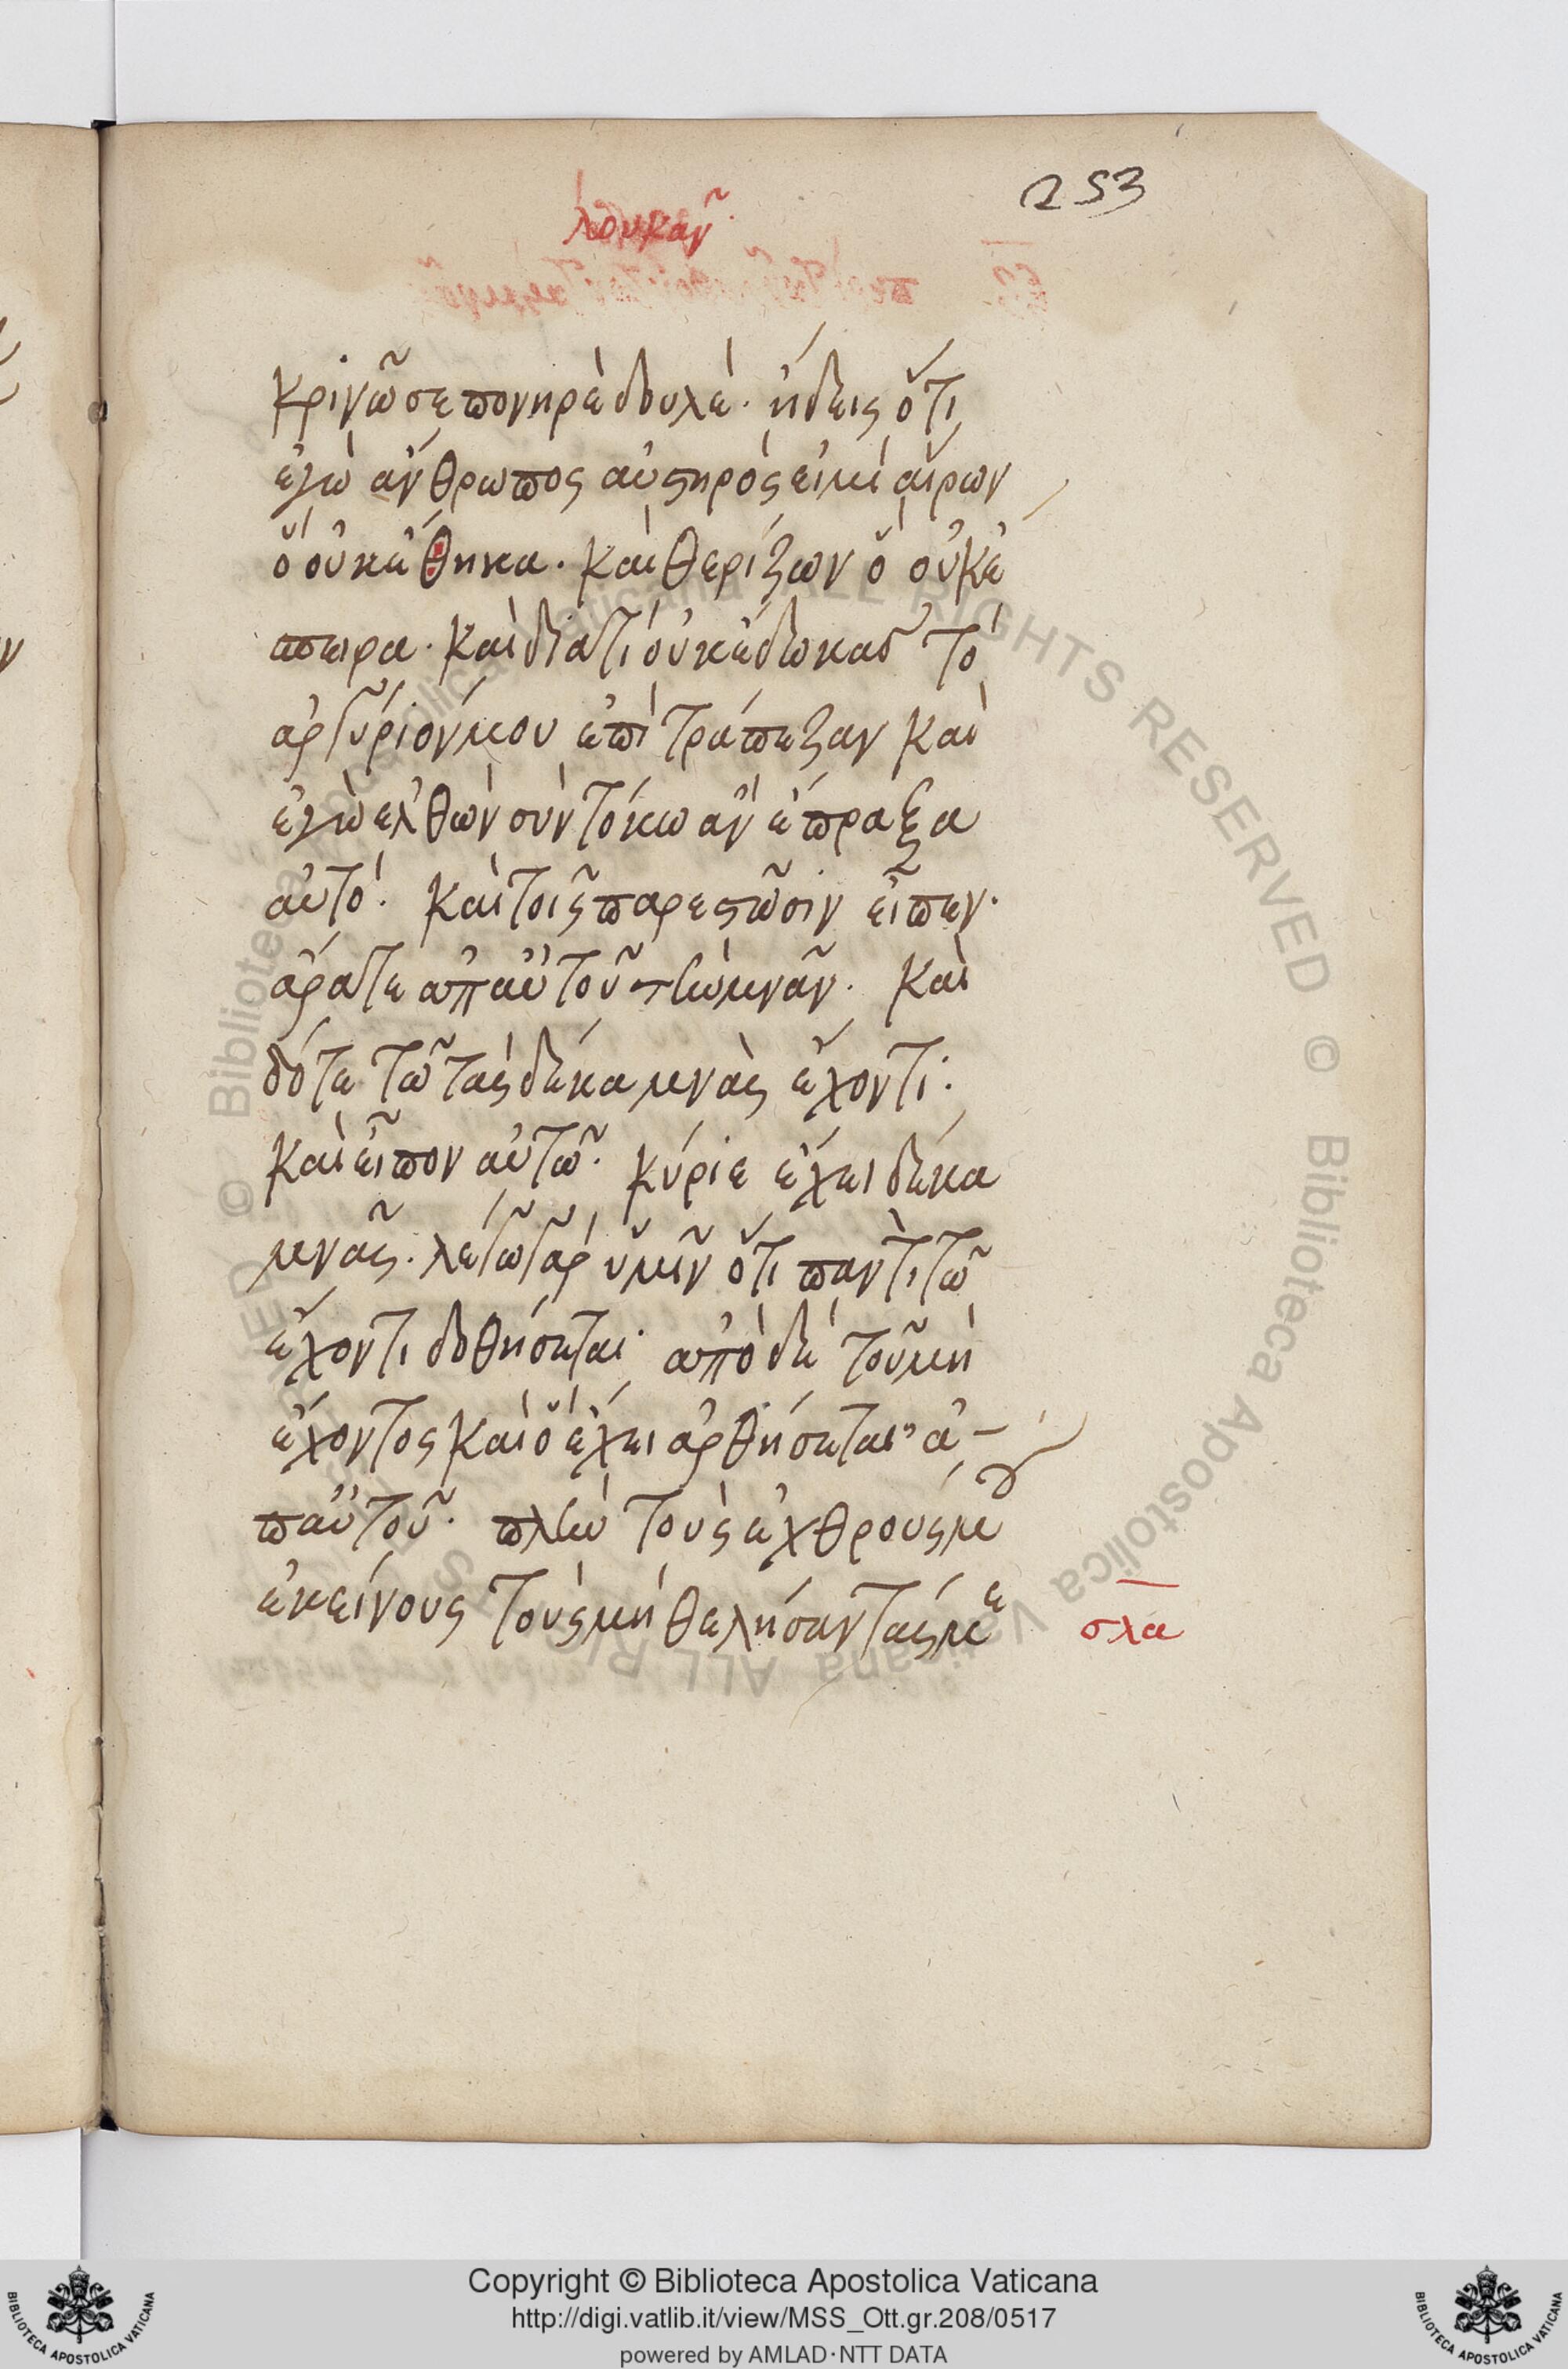 253
λουκᾶν
κρινῶ σε πονηρὲ δουλὲ. ἤδεις ὅτι
ἐγὼ ἄνθρωπος αὐστηρός εἰμι αἴρων
ὃ οὐκ ἔθηκα. καὶ θερίζων ὃ οὐκ ἔ
σπειρα. καὶ διατί οὐκ ἔδωκας τὸ
ἀργύριόν μου ἐπὶ τράπεζαν καὶ
ἐγὼ ἐλθὼν σὺν τόκω ἂν ἔπραξα
αὐτό. καὶ τοῖς παρεστῶσιν εἶπεν.
ἄρατε ἀπ αὐτοῦ τὴν μνᾶν. καὶ
δότε τῶ τὰς δέκα μνὰς ἔχοντι.
καὶ εἶπον αὐτῶ. κύριε ἔχει δέκα
μνᾶς. λέγω γὰρ ὑμῖν ὅτι παντὶ τῶ
ἔχοντι δοθήσεται. ἀπὸ δὲ τοῦ μὴ
ἔχοντος καὶ ὃ ἔχει ἀρθήσεται ἀ-
π αὐτοῦ. πλὴν τοὺς ἐχθρούς μου
ἐκείνους τοὺς μὴ θελήσαντάς με
σλα
Copyright © Biblioteca Apostolica Vaticana
http://digi.vatlib.it/view/MSS_Ott.gr.208/0517
powered by AMLAD·NTT DATA